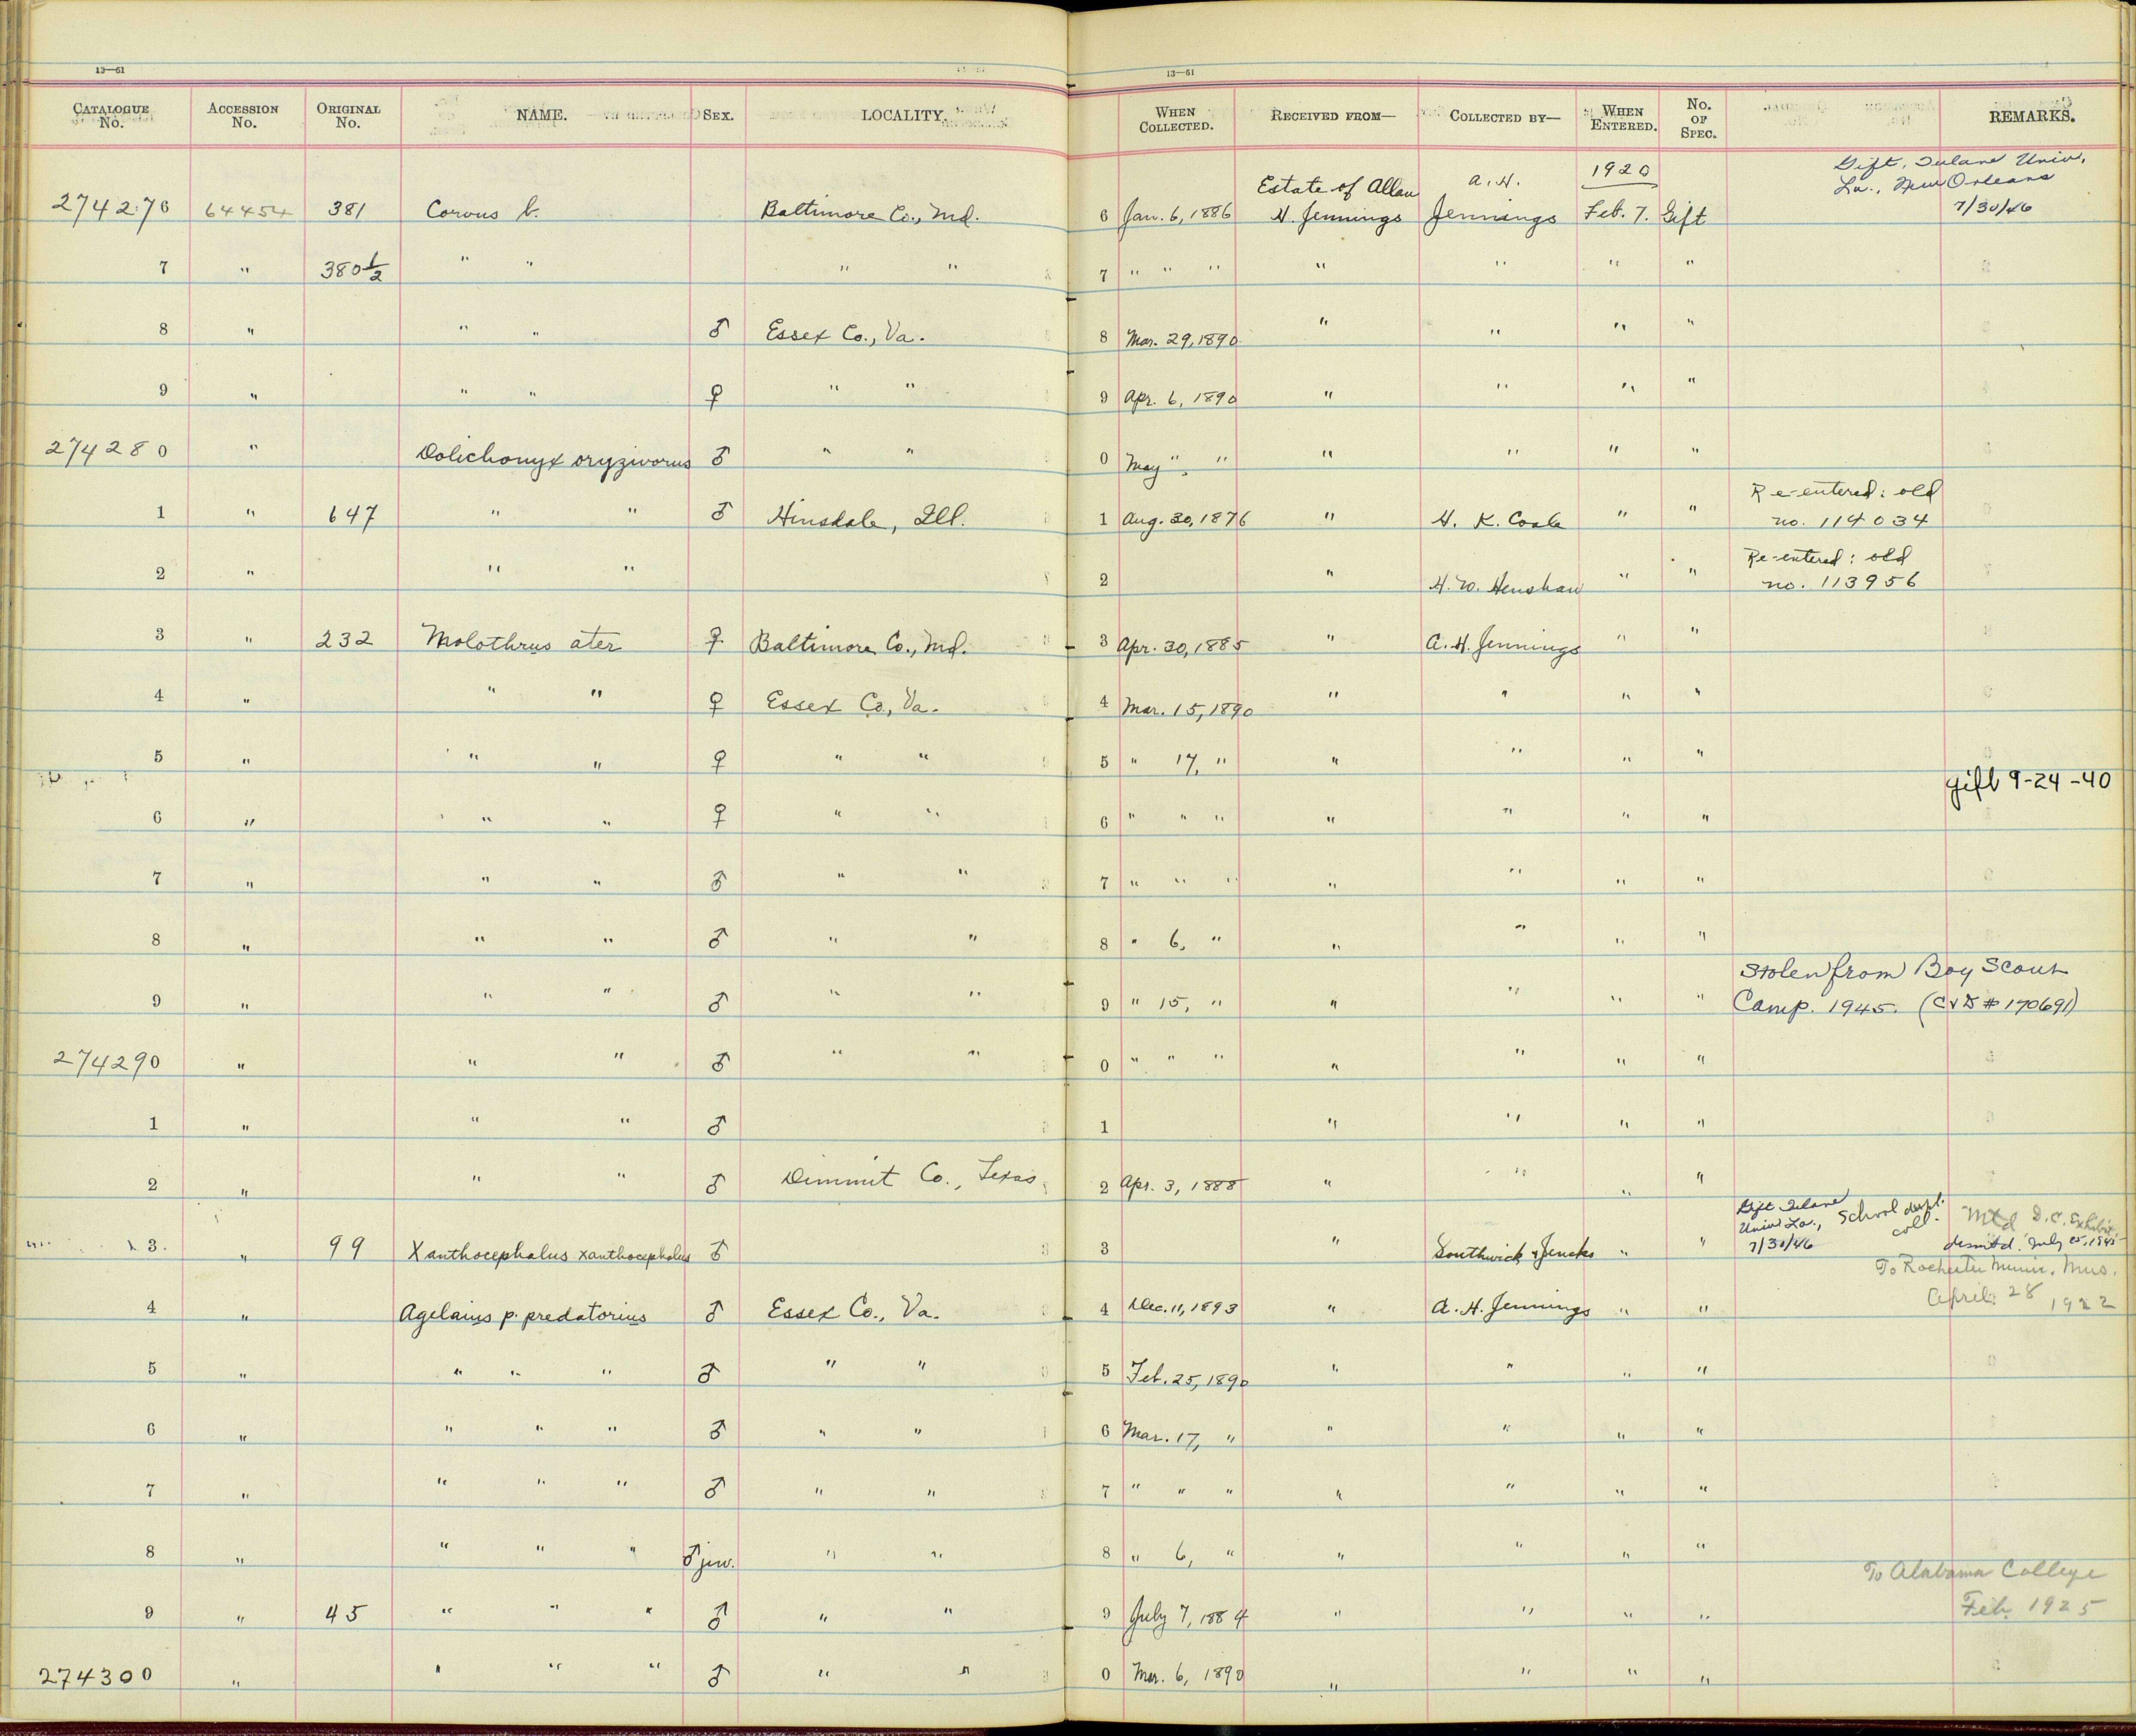 13—61 13—61
CATALOGUE No. ACCESSION No. ORIGINAL No. NAME. SEX. LOCALITY. WHEN COLLECTED. RECEIVED FROM— COLLECTED BY— WHEN ENTERED. No. OF SPEC. REMARKS.
274276 64454 381 Corvus b. Baltimore Co., Md. 6 Jan. 6, 1886 Estate of Allan H. Jennings A. H. Jennings 1920 Feb. 7. Gift Gift, Tulane Univ, La., New Orleans 7/30/46
7 " 380½ " " " " 7 " " " " " " "
8 " " " ♂ Essex Co., Va. 8 Mar. 29, 1890 " " " "
9 " " " ♀ " " 9 Apr. 6, 1890 " " " "
274280 " Dolichonyx oryzivorus ♂ " " 0 May ", " " " " "
1 " 647 " " ♂ Hinsdale, Ill. 1 Aug. 30, 1876 " H. K. Coale " " Re-entered: old no. 114034
2 " " " 2 " H. W. Henshaw " " Re-entered: old no. 113956
3 " 232 Molothrus ater ♀ Baltimore Co., Md. 3 Apr. 30, 1885 " A. H. Jennings " "
4 " " " ♀ Essex Co., Va. 4 Mar. 15, 1890 " " " "
5 " " " ♀ " " 5 " 17, " " " " "
6 " " " ♀ " " 6 " " " " " " " gift 9-24-40
7 " " " ♂ " " 7 " " " " " " "
8 " " " ♂ " " 8 " 6, " " " " "
9 " " " ♂ " " 9 " 15, " " " " " Stolen from Boy Scout Camp. 1945. (CVD # 170691)
274290 " " " ♂ " " 0 " " " " " " "
1 " " " ♂ 1 " " " "
2 " " " ♂ Dimmit Co., Texas 2 Apr. 3, 1888 " " " "
3. " 99 Xanthocephalus xanthocephalus ♂ 3 " Southwick & Jencks " " Gift Tulane Univ. La., 7/30/46 School dupl. coll. Mtd D.C. Exhibit, dismtd. July 25, 1945
4 " Agelaius p. predatorius ♂ Essex Co., Va. 4 Dec. 11, 1893 " A. H. Jennings " " To Rochester Munic. Mus. April 28 1922
5 " " " " ♂ " " 5 Feb. 25, 1890 " " " "
6 " " " " ♂ " " 6 Mar. 17, " " " " "
7 " " " " ♂ " " 7 " " " " " " "
8 " " " " ♂ juv. " " 8 " 6, " " " " "
9 " 45 " " " ♂ " " 9 July 7, 1884 " " " " To Alabama College Feb. 1925
274300 " " " " ♂ " " 0 Mar. 6, 1890 " " " "